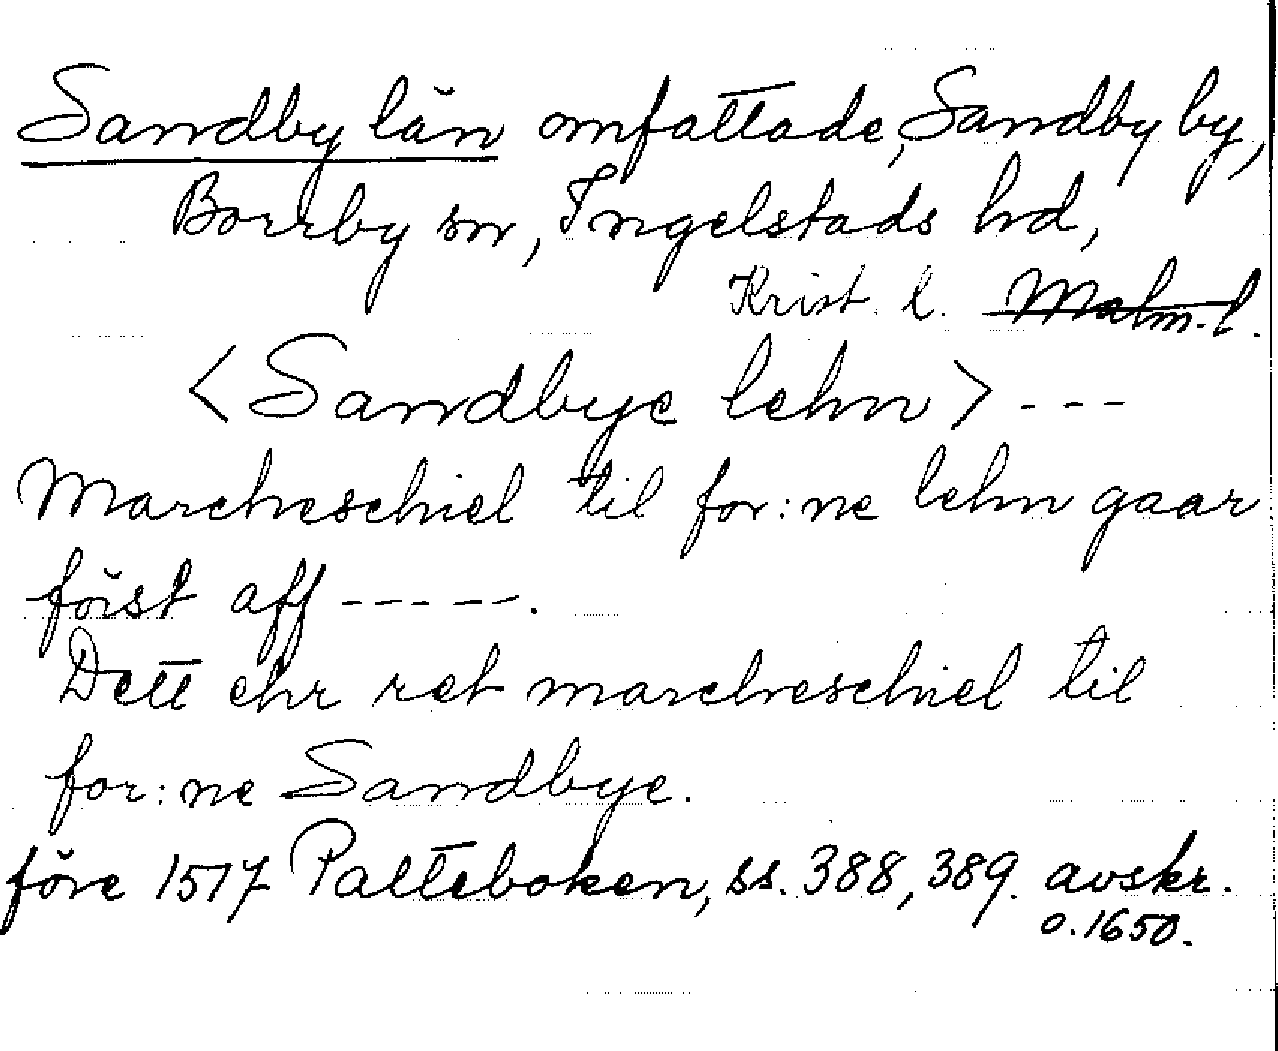 Sandby län omfattade, Sandby by,
Borrby sn, Ingelstads hd,
Krist. l. Malm. l.
<Sandbye lehn> ---
Marcheschiel til for:ne lehn gaar
först aff -----.
Dett ehr ret marcheschiel til
for:ne Sandbye.
före 1517 Palteboken, ss. 388, 389. avskr.
o. 1650.